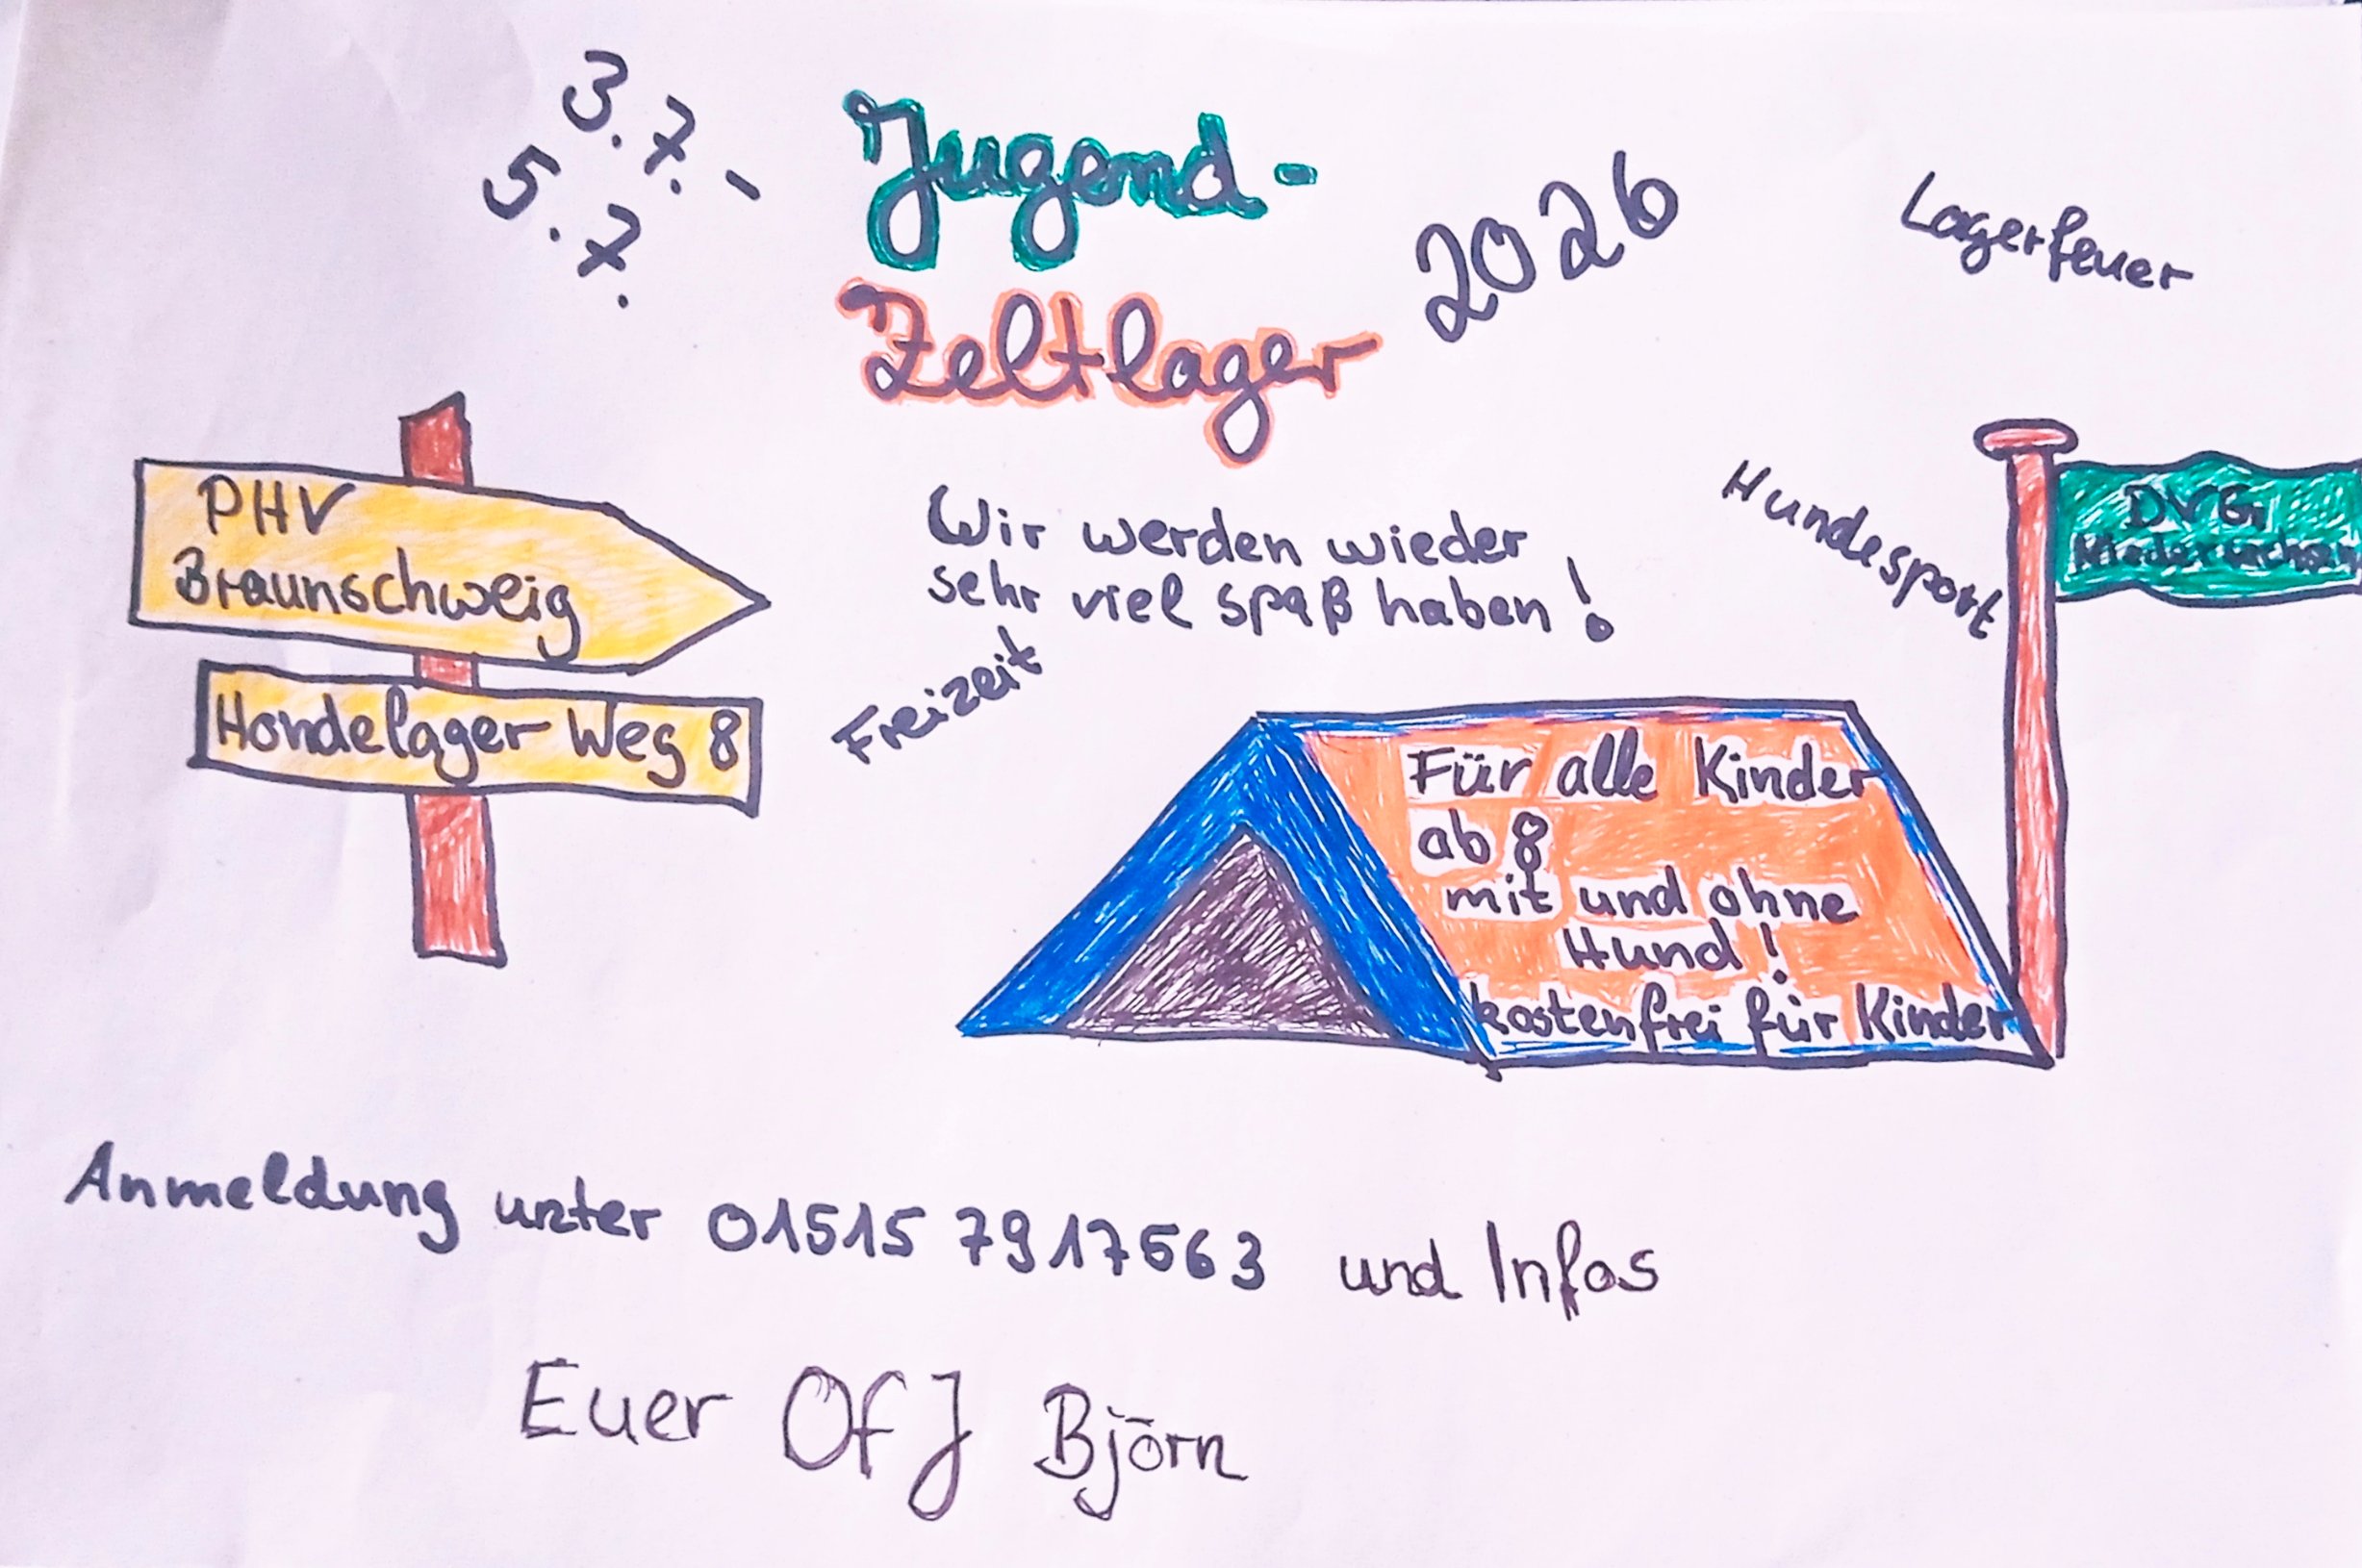 3.7. -
5.7.
Jugend-
Zeltlager
2026
Lagerfeuer
PHV
Braunschweig
Hondelager Weg 8
Wir werden wieder
sehr viel spaß haben!
Freizeit
Hundesport
DVG
Niedersachsen
Für alle Kinder
ab 8
mit und ohne
Hund!
kostenfrei für Kinder
Anmeldung unter 01515 7917563 und Infos
Euer OfJ Björn